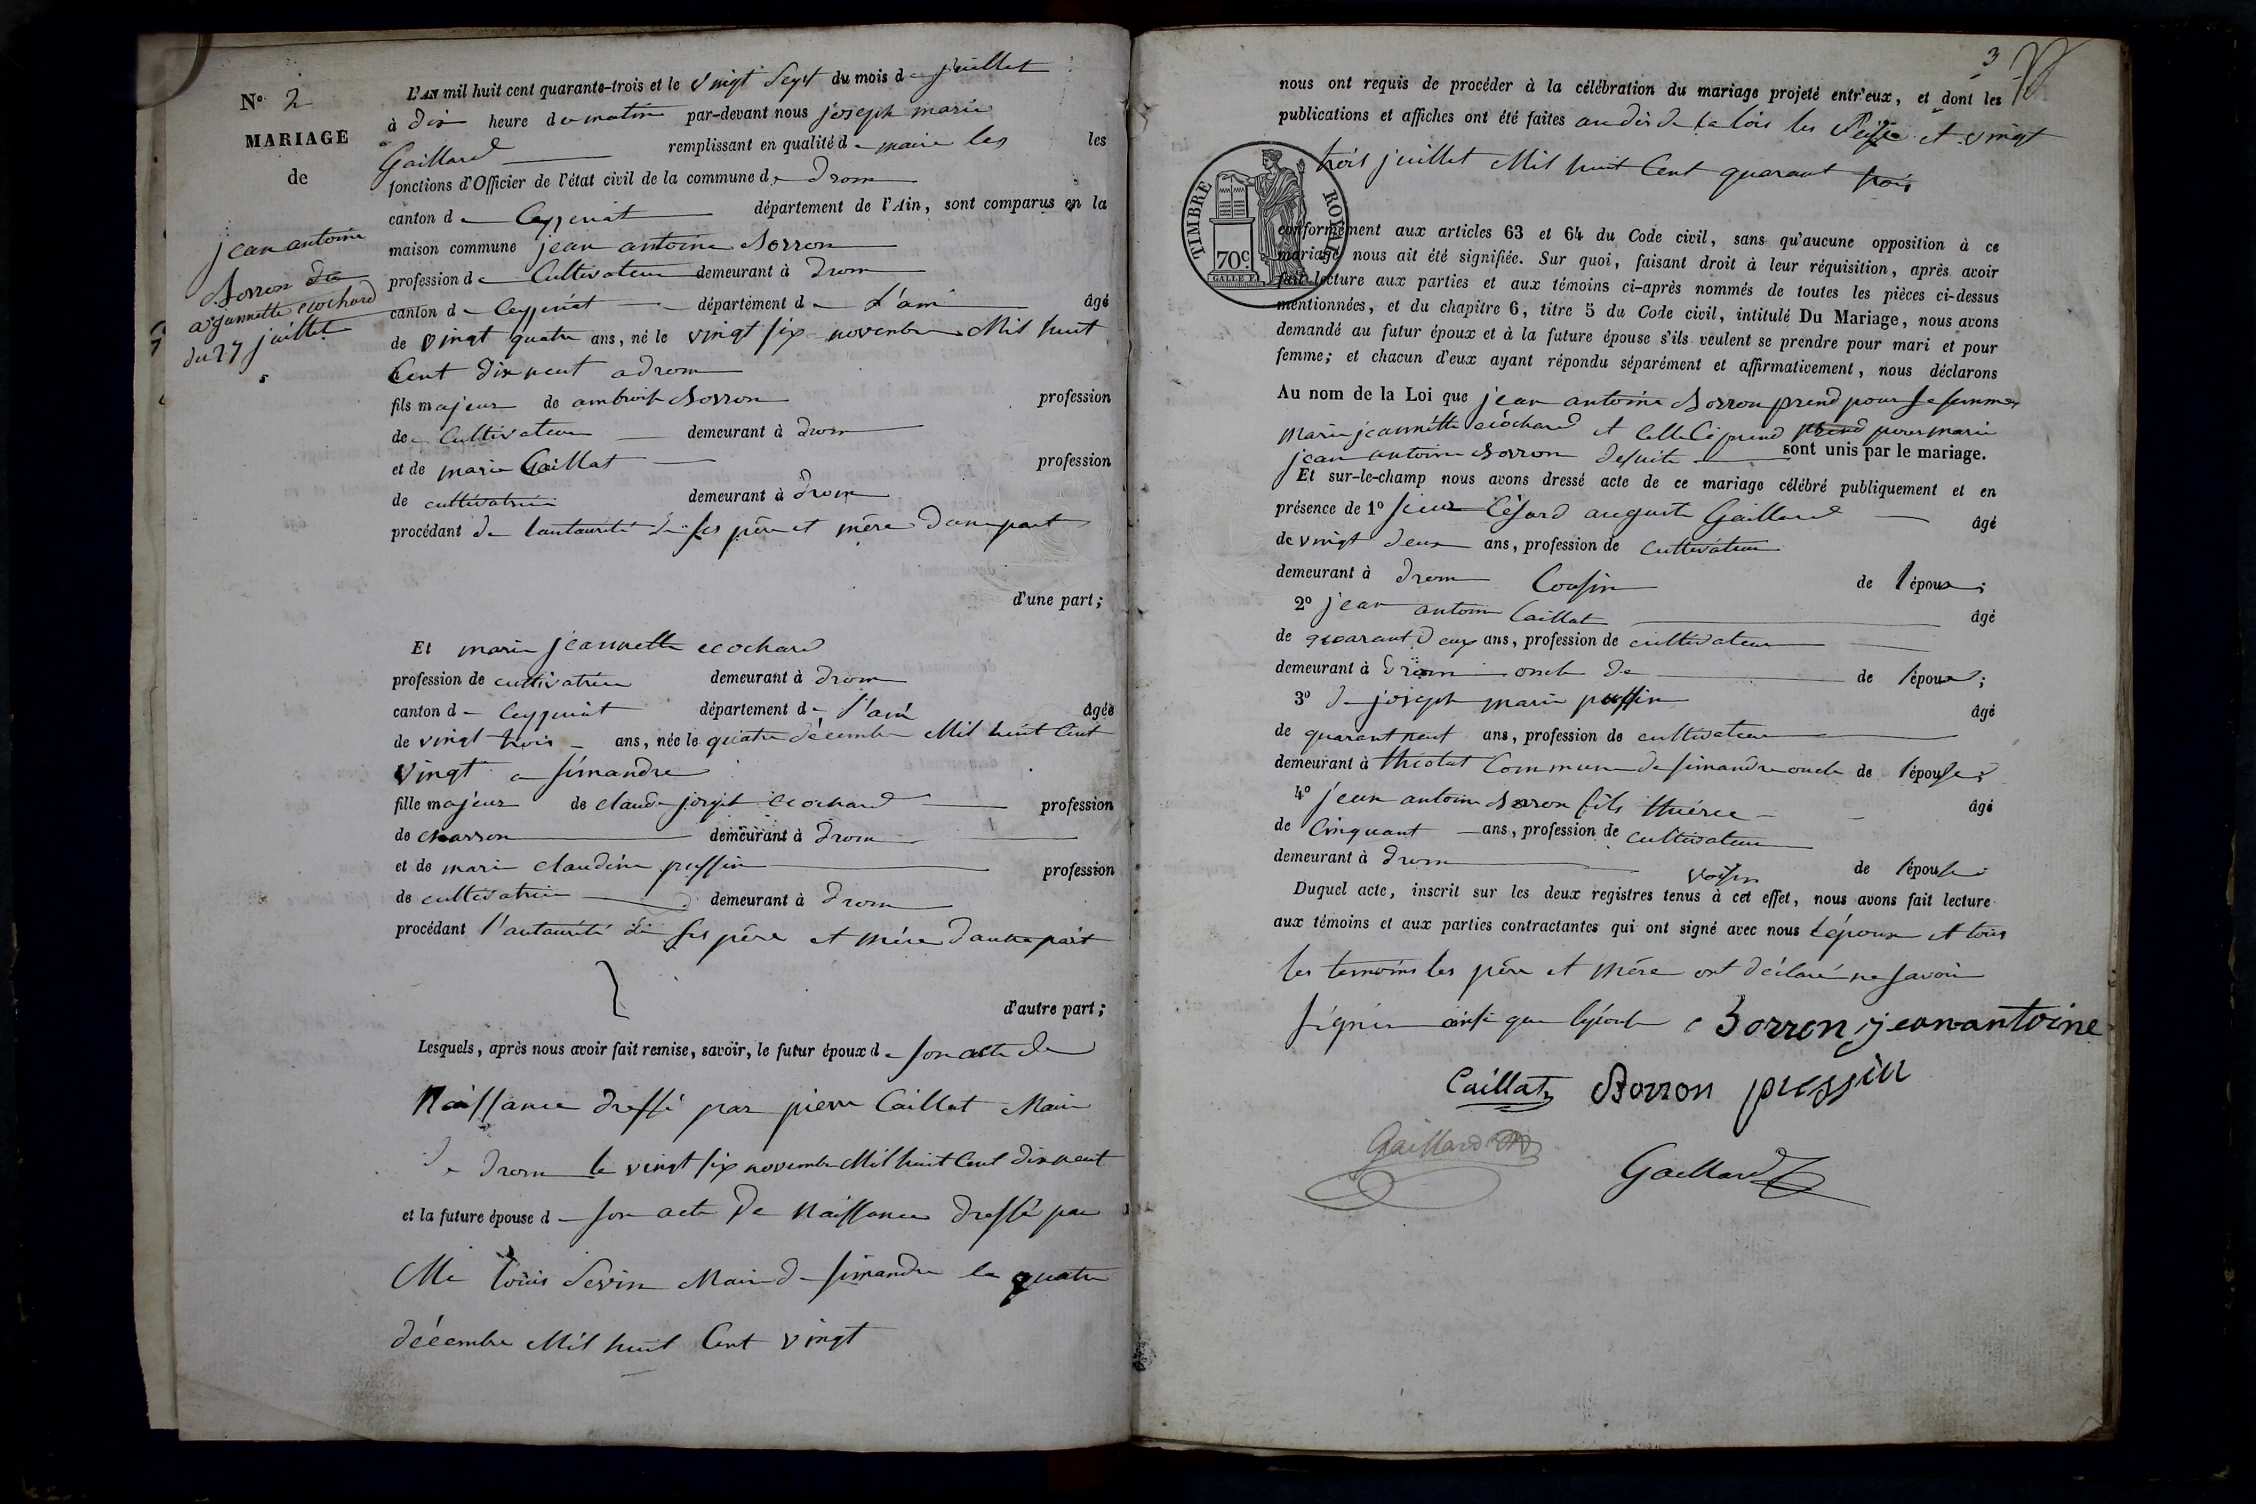 N° 2
MARIAGE
de
jean antoine
Borron
a jannette ecochard
du 27 juillet
L'AN mil huit cent quarante-trois et le vingt sept du mois de juillet
à dix heure du matin par-devant nous joseph marie
Gaillard remplissant en qualité de maire les les
fonctions d'Officier de l'état civil de la commune de drom
canton de Ceyzeriat département de l'Ain, sont comparus en la
maison commune jean antoine Borron
profession de Cultivateur demeurant à drom
canton de Ceyzeriat département de L'ain âgé
de vingt quatre ans, né le vingt six novembre Mil huit
Cent dix neuf a drom
fils majeur de ambroise Borron profession
de Cultivateur demeurant à drom
et de marie Caillat profession
de cultivatrice demeurant à drom
procédant de lautaurité de ses père et mère dune part
d'une part;
Et marie jeannette ecochard
profession de cultivatrice demeurant à drom
canton de Ceyzeriat département de l'ain âgée
de vingt trois ans, née le quatre décembre Mil huit Cent
Vingt a simandre
fille majeur de claude joseph ecochard profession
de charron demeurant à drom
et de marie claudine puffin profession
de cultivatrice demeurant à drom
procédant l'autaurité de ses père et mère dautre part
d'autre part;
Lesquels, après nous avoir fait remise, savoir, le futur époux de son acte de
Naissance dressé par pierre Caillat Maire
de drom le vingt six novembre Mil huit Cent dix neuf
et la future épouse de son acte de Naissance dressé par
Me Louis Maire de simandre le quatre
décembre Mil huit Cent vingt
3
nous ont requis de procéder à la célébration du mariage projeté entr'eux, et dont les
publications et affiches ont été faites au dir de la lois les Seize et vingt
trois juillet Mil huit Cent quarant trois
TIMBRE ROYAL
70c
conformément aux articles 63 et 64 du Code civil, sans qu'aucune opposition à ce
mariage nous ait été signifiée. Sur quoi, faisant droit à leur réquisition, après avoir
fait lecture aux parties et aux témoins ci-après nommés de toutes les pièces ci-dessus
mentionnées, et du chapitre 6, titre 5 du Code civil, intitulé Du Mariage, nous avons
demandé au futur époux et à la future épouse s'ils veulent se prendre pour mari et pour
femme; et chacun d'eux ayant répondu séparément et affirmativement, nous déclarons
Au nom de la Loi que jean antoine Borron prend pour sa femme
Marie jeannette ecochard et Celle Ci prend prend pour marie
jean antoine Borron desuite sont unis par le mariage.
Et sur-le-champ nous avons dressé acte de ce mariage célébré publiquement et en
présence de 1° sieur Césard auguste Gaillard âgé
de vingt deux ans, profession de cultivateur
demeurant à drom Cousin de l'époux;
2° jean antoine Caillat âgé
de quarant deux ans, profession de cultivateur
demeurant à drom oncle de de l'époux;
3° de joseph marie puffin âgé
de quarant neuf ans, profession de cultivateur
demeurant à thiolet Commune de simandre oncle de l'épouse;
4° jean antoine Borron fils âgé
de Cinquant ans, profession de cultivateur
demeurant à drom voisin de l'épouse
Duquel acte, inscrit sur les deux registres tenus à cet effet, nous avons fait lecture
aux témoins et aux parties contractantes qui ont signé avec nous L'époux et tous
les temoins les père et Mère ont déclaré ne savoir
signer ainsi que lépouse Borron jean antoine
Caillat Borron pussin
Gaillard
Gaillard